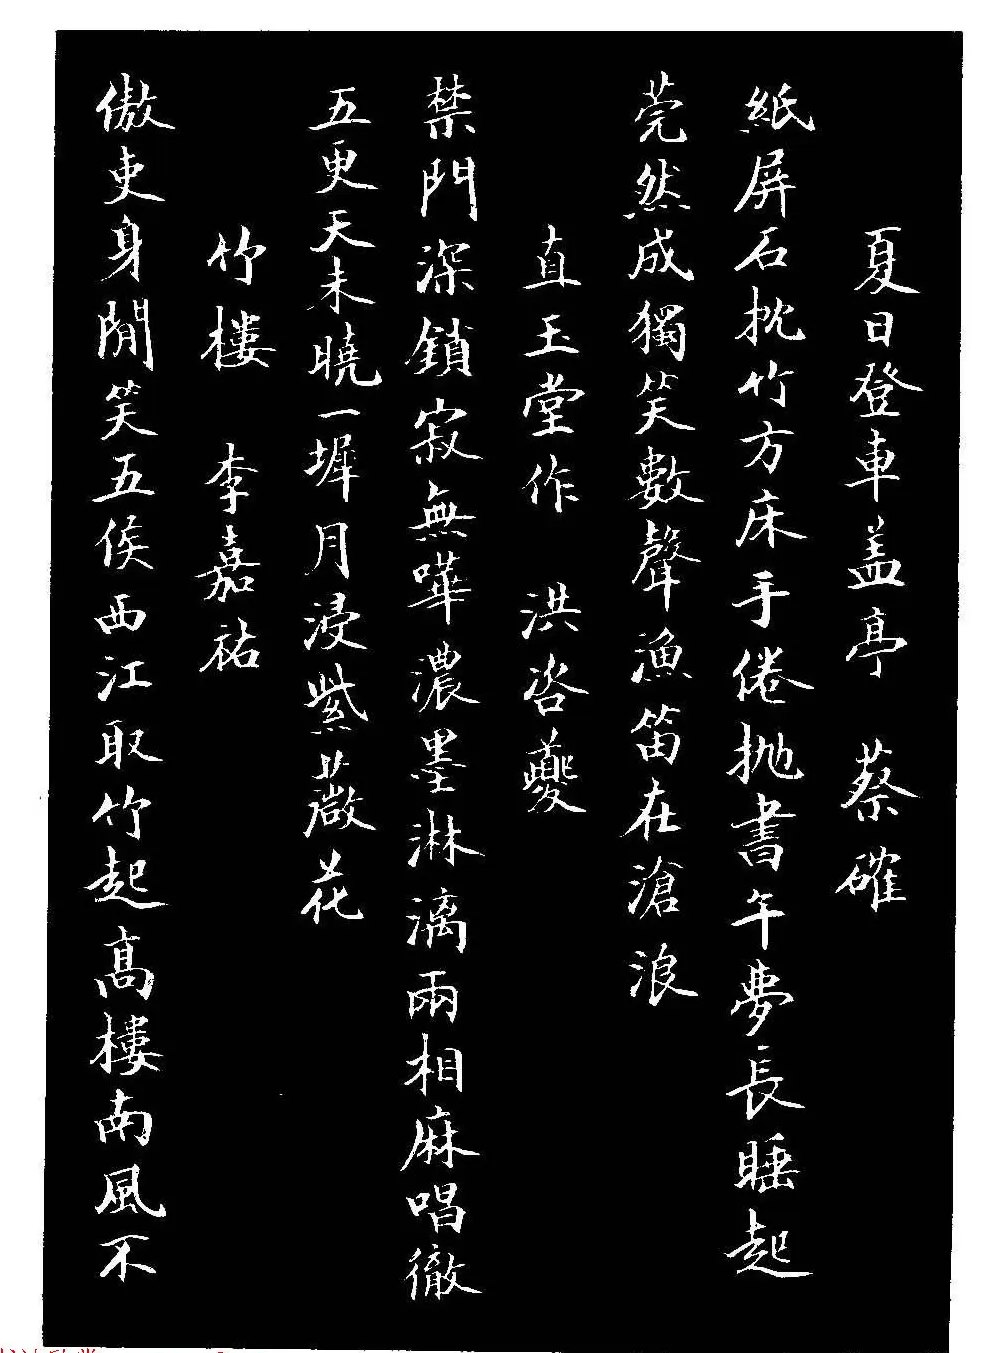 夏日登車盖亭 蔡確
紙屏石枕竹方床手倦抛書午夢長睡起
莞然成獨笑數聲漁笛在滄浪
直玉堂作 洪咨夔
禁門深鎖寂無嘩濃墨淋漓兩相麻唱徹
五更天未曉一墀月浸紫薇花
竹樓 李嘉祐
傲吏身閒笑五侯西江取竹起髙樓南風不